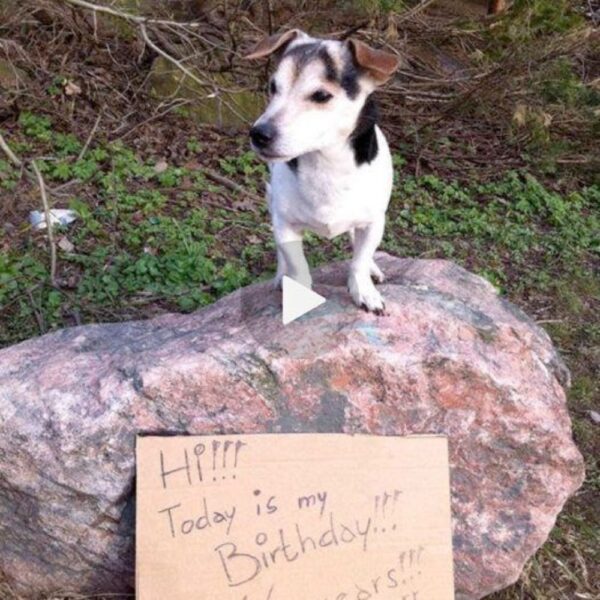 Hi!!!
Today is my
Birthday!!!
years!!!